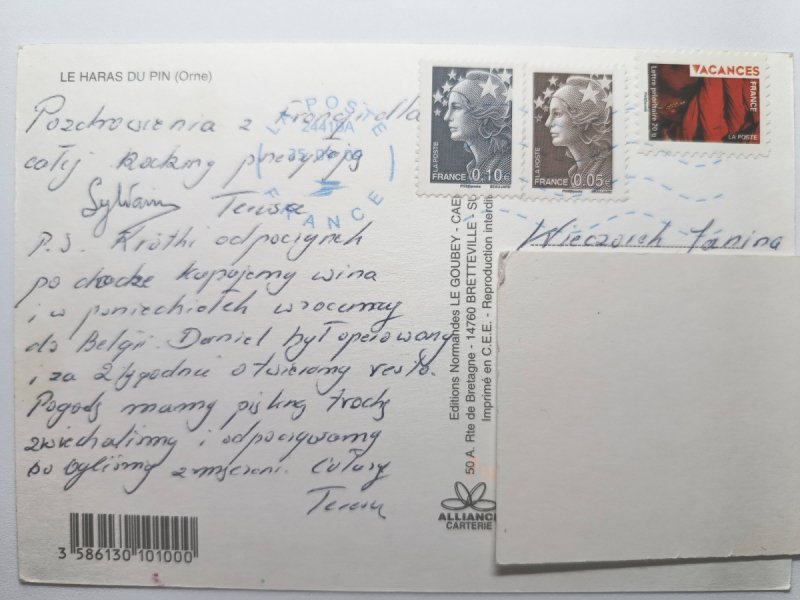 LE HARAS DU PIN (Orne)
Pozdrowienia z Francji dla
całej
Sylwain Teresa
P.S. Krótki odpoczynek
po chorobie kupujemy wina
i w poniedziałek wracamy
do Belgii. Daniel był operowany
i za 2 tygodnie otwieramy resto.
Pogodę mamy piękną trochę
zwiedzaliśmy i odpoczywamy
bo byliśmy zmęczeni. Całusy
Teresa
3 586130 101000
LA POSTE
24419A
FRANCE
LA POSTE
FRANCE 0,10€
LA POSTE
FRANCE 0,05€
VACANCES
Lettre prioritaire 20g
FRANCE
LA POSTE
Wieczorek Janina
Editions Normandes LE GOUBEY - CAEN
50 A. Rte de Bretagne - 14760 BRETTEVILLE - SU
Imprimé en C.E.E. - Reproduction interdi
ALLIANCE
CARTERIE